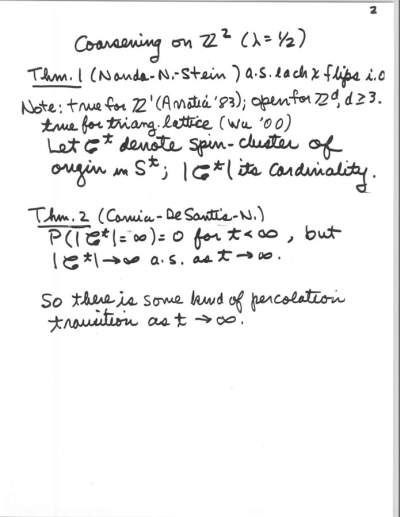 2
Coarsening on ℤ² (λ = ½)
Thm. 1 (Nanda-N.-Stein) a.s. each x flips i.o
Note: true for ℤ¹ (Arratia '83); open for ℤᵈ, d ≥ 3.
true for triang. lattice (Wu '00)
Let 𝒞ᵗ denote spin-cluster of
origin in Sᵗ; |𝒞ᵗ| its cardinality.
Thm. 2 (Camia-De Santis-N.)
P(|𝒞ᵗ| = ∞) = 0 for t < ∞, but
|𝒞ᵗ| → ∞ a.s. as t → ∞.
So there is some kind of percolation
transition as t → ∞.